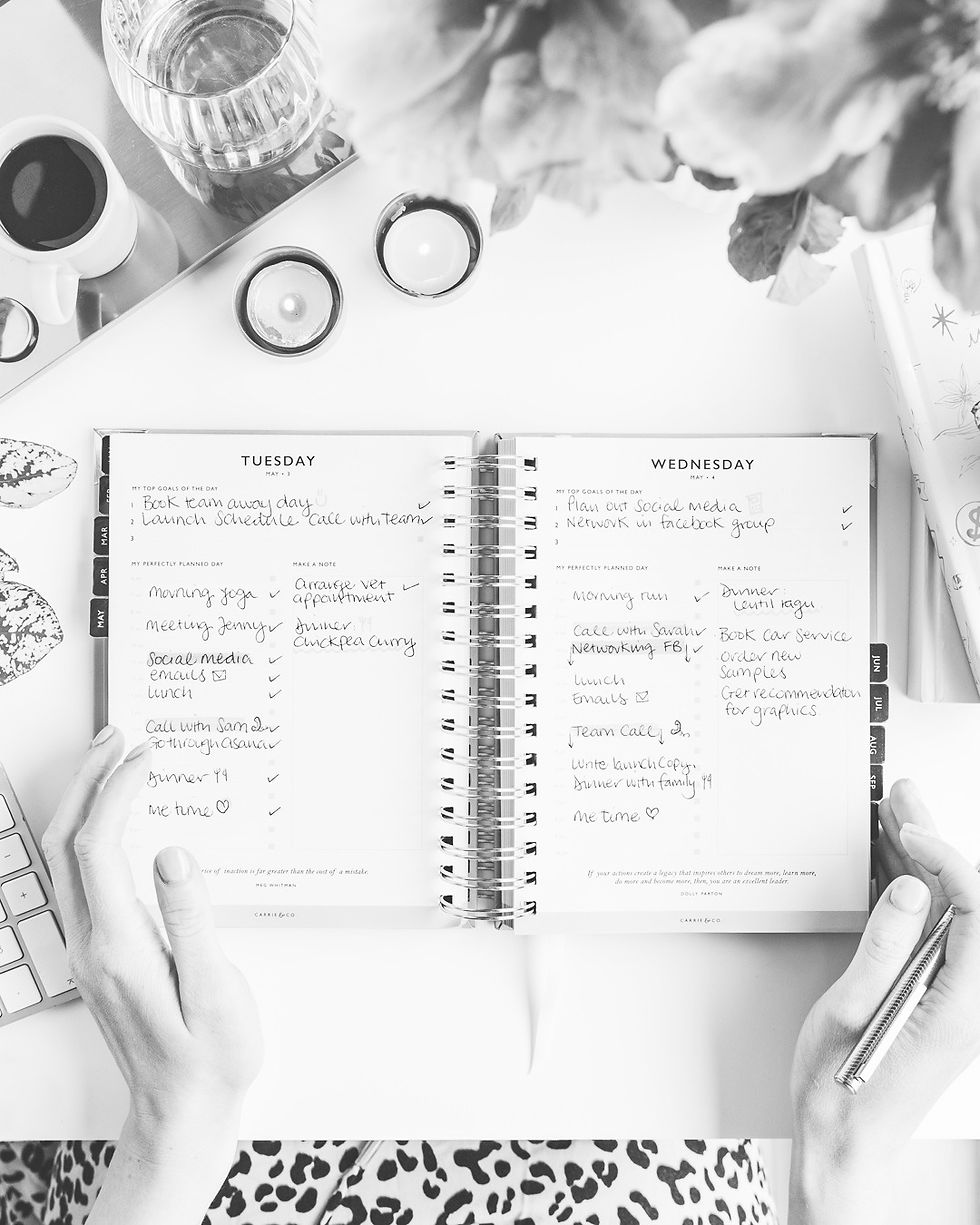 TUESDAY
MAY • 3
MY TOP GOALS OF THE DAY
1 Book team away day
2 Launch Schedule Call with Team
3
MY PERFECTLY PLANNED DAY
Morning yoga
Meeting Jenny
Social media
emails
lunch
Call with Sam
Go through Asana
Dinner
Me time
MAKE A NOTE
Arrange vet
appointment
Dinner:
Chickpea Curry
of inaction is far greater than the cost of a mistake.
MEG WHITMAN
CARRIE & CO.
MAR
APR
MAY
WEDNESDAY
MAY • 4
MY TOP GOALS OF THE DAY
1 Plan out Social media
2 Network in facebook group
3
MY PERFECTLY PLANNED DAY
Morning run
Call with Sarah
Networking FB
Lunch
Emails
Team Call
Write launch Copy
Dinner with family
Me time
MAKE A NOTE
Dinner:
Lentil ragu
Book Car Service
Order new
Samples
Get recommendation
for graphics.
If your actions create a legacy that inspires others to dream more, learn more,
do more and become more, then, you are an excellent leader.
DOLLY PARTON
CARRIE & CO.
JUN
JUL
AUG
SEP